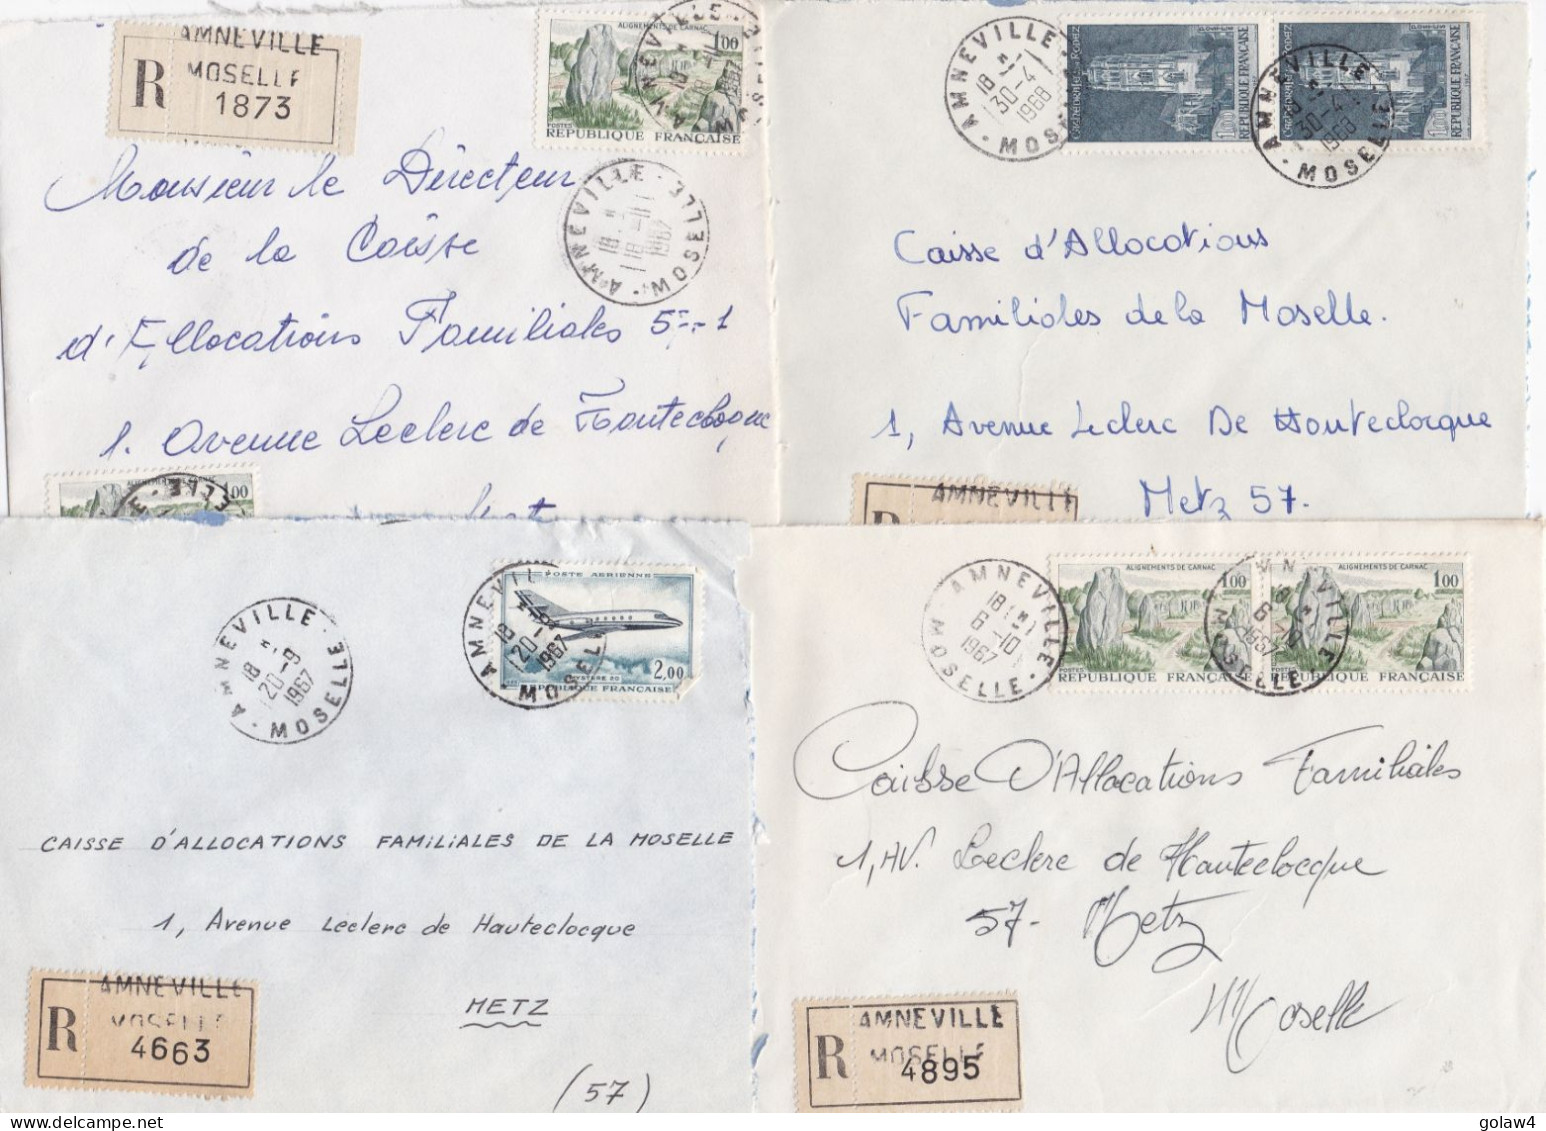 AMNEVILLE
MOSELLE
R 1873
ALIGNEMENTS DE CARNAC
1,00
POSTES
REPUBLIQUE FRANÇAISE
AMNEVILLE
MOSELLE
1967
AMNEVILLE
18 H
18-11
1967
MOSELLE
Monsieur le Directeur
de la Caisse
d'Allocations Familiales 57-1
1. Avenue Leclerc de Hauteclocque
1,00
AMNEVILLE
18 H
30-4
1968
MOSELLE
REPUBLIQUE FRANÇAISE
1,00
AMNEVILLE
30-4
1968
MOSELLE
REPUBLIQUE FRANÇAISE
1,00
Caisse d'Allocations
Familiales de la Moselle.
1, Avenue Leclerc De Hauteclocque
Metz 57.
AMNEVILLE
R
AMNEVILLE
18 H
20-9
1967
MOSELLE
POSTE AERIENNE
MYSTERE 20
2,00
REPUBLIQUE FRANÇAISE
AMNEVILLE
18 H
20-9
1967
MOSELLE
CAISSE D'ALLOCATIONS FAMILIALES DE LA MOSELLE
1, Avenue Leclerc de Hauteclocque
METZ
(57)
AMNEVILLE
MOSELLE
R 4663
AMNEVILLE
18 H
6-10
1967
MOSELLE
ALIGNEMENTS DE CARNAC
1,00
POSTES
REPUBLIQUE FRANÇAISE
AMNEVILLE
18 H
6-10
1967
MOSELLE
ALIGNEMENTS DE CARNAC
1,00
REPUBLIQUE FRANÇAISE
Caisse D'Allocations Familiales
1, AV. Leclerc de Hauteclocque
57- Metz
Moselle
AMNEVILLE
MOSELLE
R 4895
golaw4